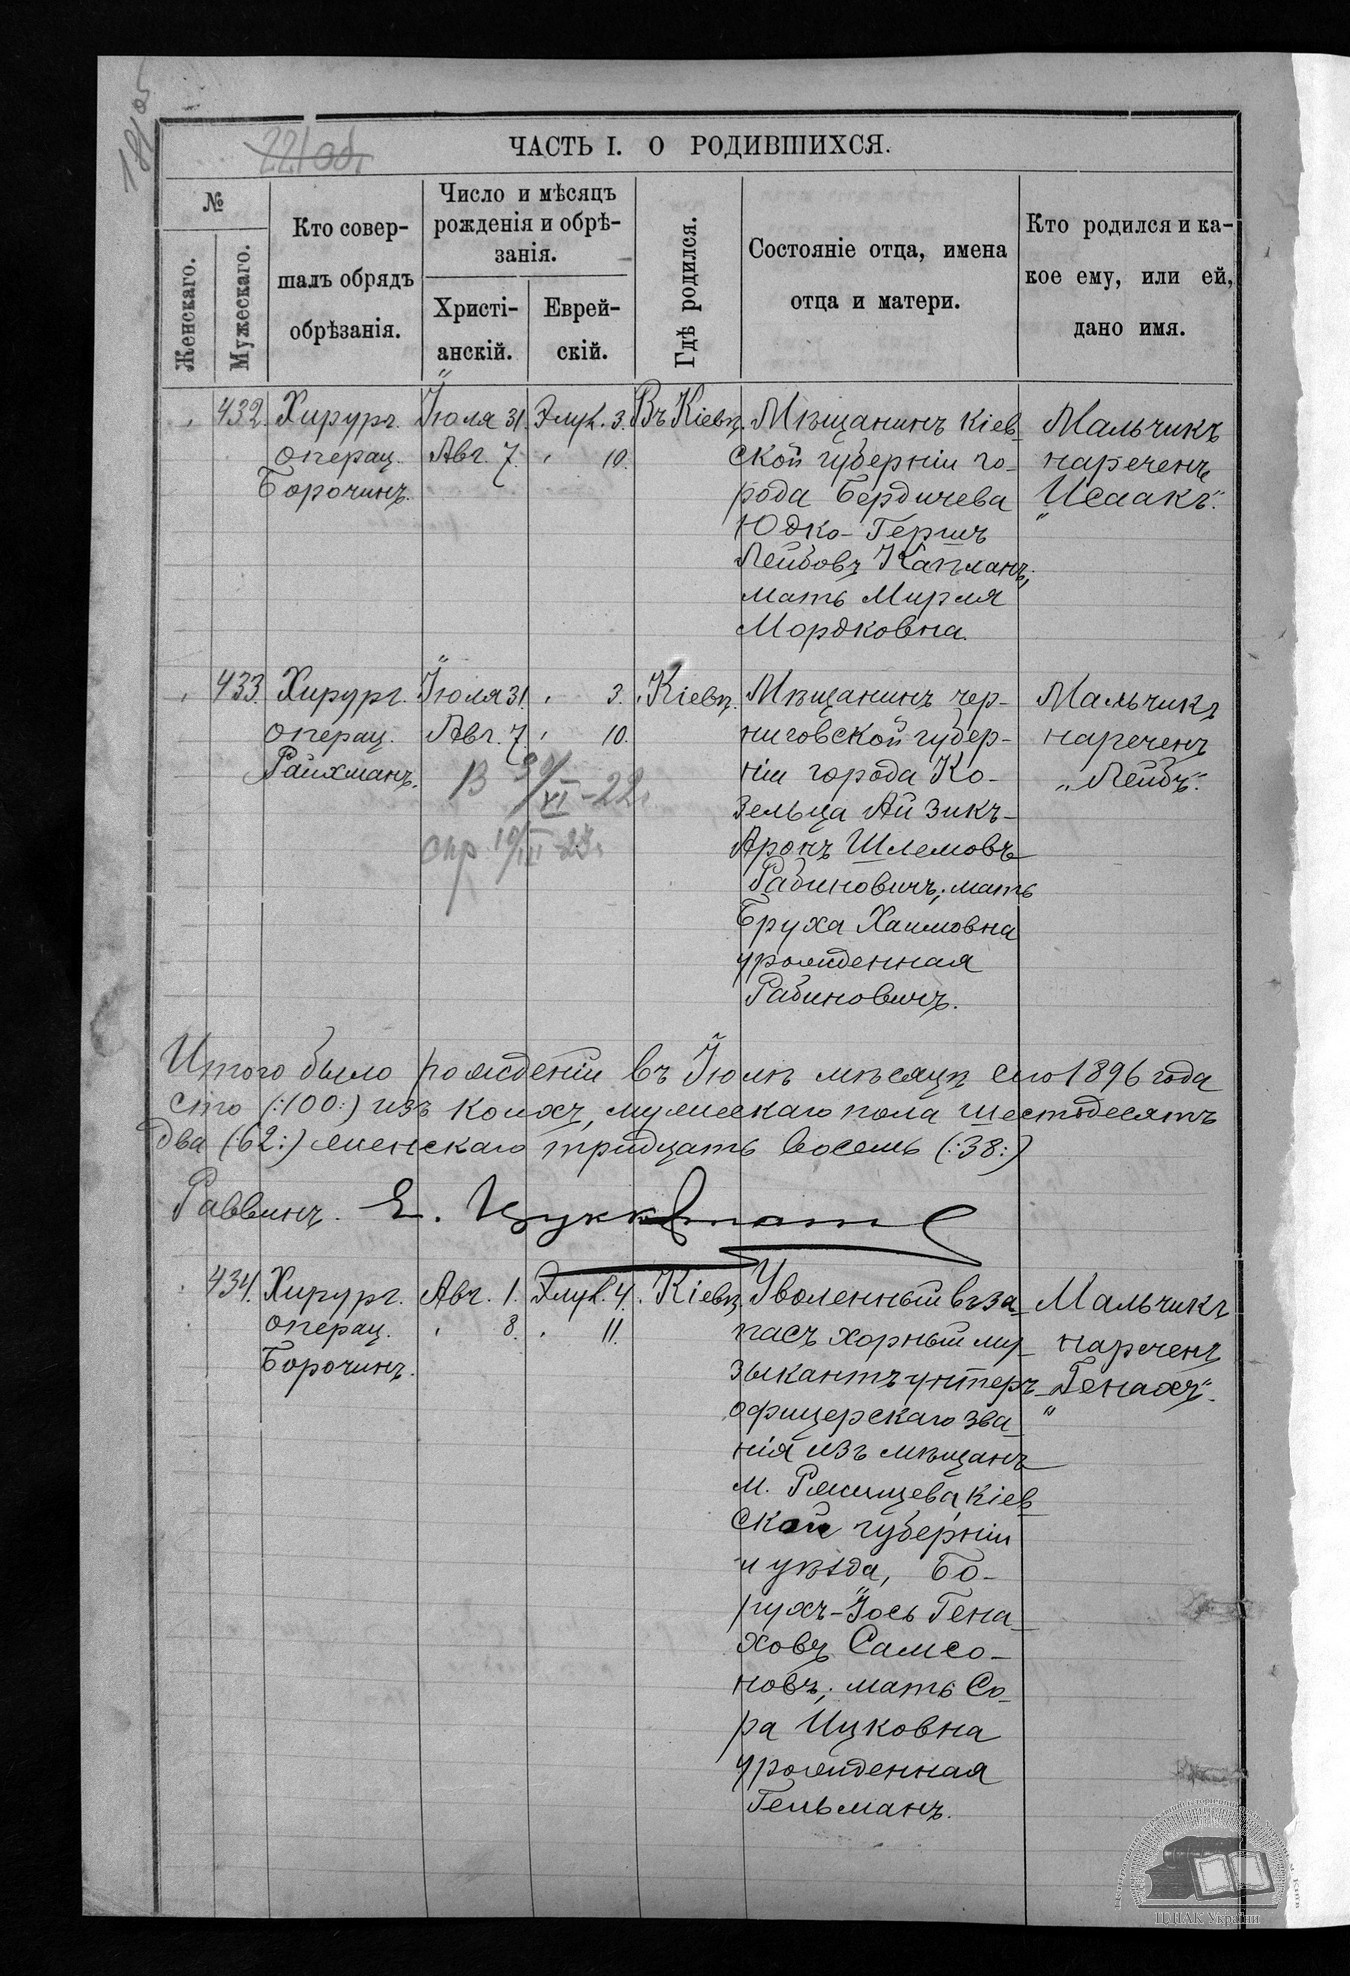 221об.
ЧАСТЬ I. О РОДИВШИХСЯ.
№
Женскаго.
Мужескаго.
Кто совер-
шалъ обрядъ
обрѣзанія.
Число и мѣсяцъ
рожденія и обрѣ-
занія.
Христі-
анскій.
Еврей-
скій.
Гдѣ родился.
Состояніе отца, имена
отца и матери.
Кто родился и ка-
кое ему, или ей,
дано имя.
432.
Хирург.
операц.
Борочинъ.
Іюля 31.
Авг. 7.
Элул. 3.
" 10.
Въ Кіевѣ.
Мѣщанинъ Кіев-
ской губерніи го-
рода Бердичева
Юдко-Гершъ
Лейбовъ Капланъ;
мать Мирля
Мордковна.
Мальчикъ
нареченъ
"Исаакъ".
433.
Хирург.
операц.
Райхманъ.
Іюля 31.
Авг. 7.
" 3.
" 10.
Кіевѣ.
В 30/VI-22г
спр
Мѣщанинъ чер-
ниговской губер-
ніи города Ко-
зельца Айзикъ-
Аронъ Шлемовъ
Рабиновичъ; мать
Бруха Хаимовна
урожденная
Рабиновичъ.
Мальчикъ
нареченъ
"Лейбъ".
Итого было рожденій въ Іюлѣ мѣсяцѣ сего 1896 года
сто (:100:) изъ коихъ, мужескаго пола шестьдесятъ
два (:62:) женскаго тридцать восемь (:38:)
Раввинъ. Е. Цуккерманъ
434.
Хирург.
операц.
Борочинъ.
Авг. 1.
" 8.
Элул. 4.
" 11.
Кіевѣ
Уволенный въ за-
пасъ хорный му-
зыкантъ унтеръ-
офицерскаго зва-
нія изъ мѣщанъ
м. Ржищева, Кіев-
ской губерніи
и уѣзда, Бо-
рухъ-Іось Гена-
ховъ Самсо-
новъ; мать Со-
ра Ицковна
урожденная
Гельманъ.
Мальчикъ
нареченъ
"Генахъ".
ЦДІАК України